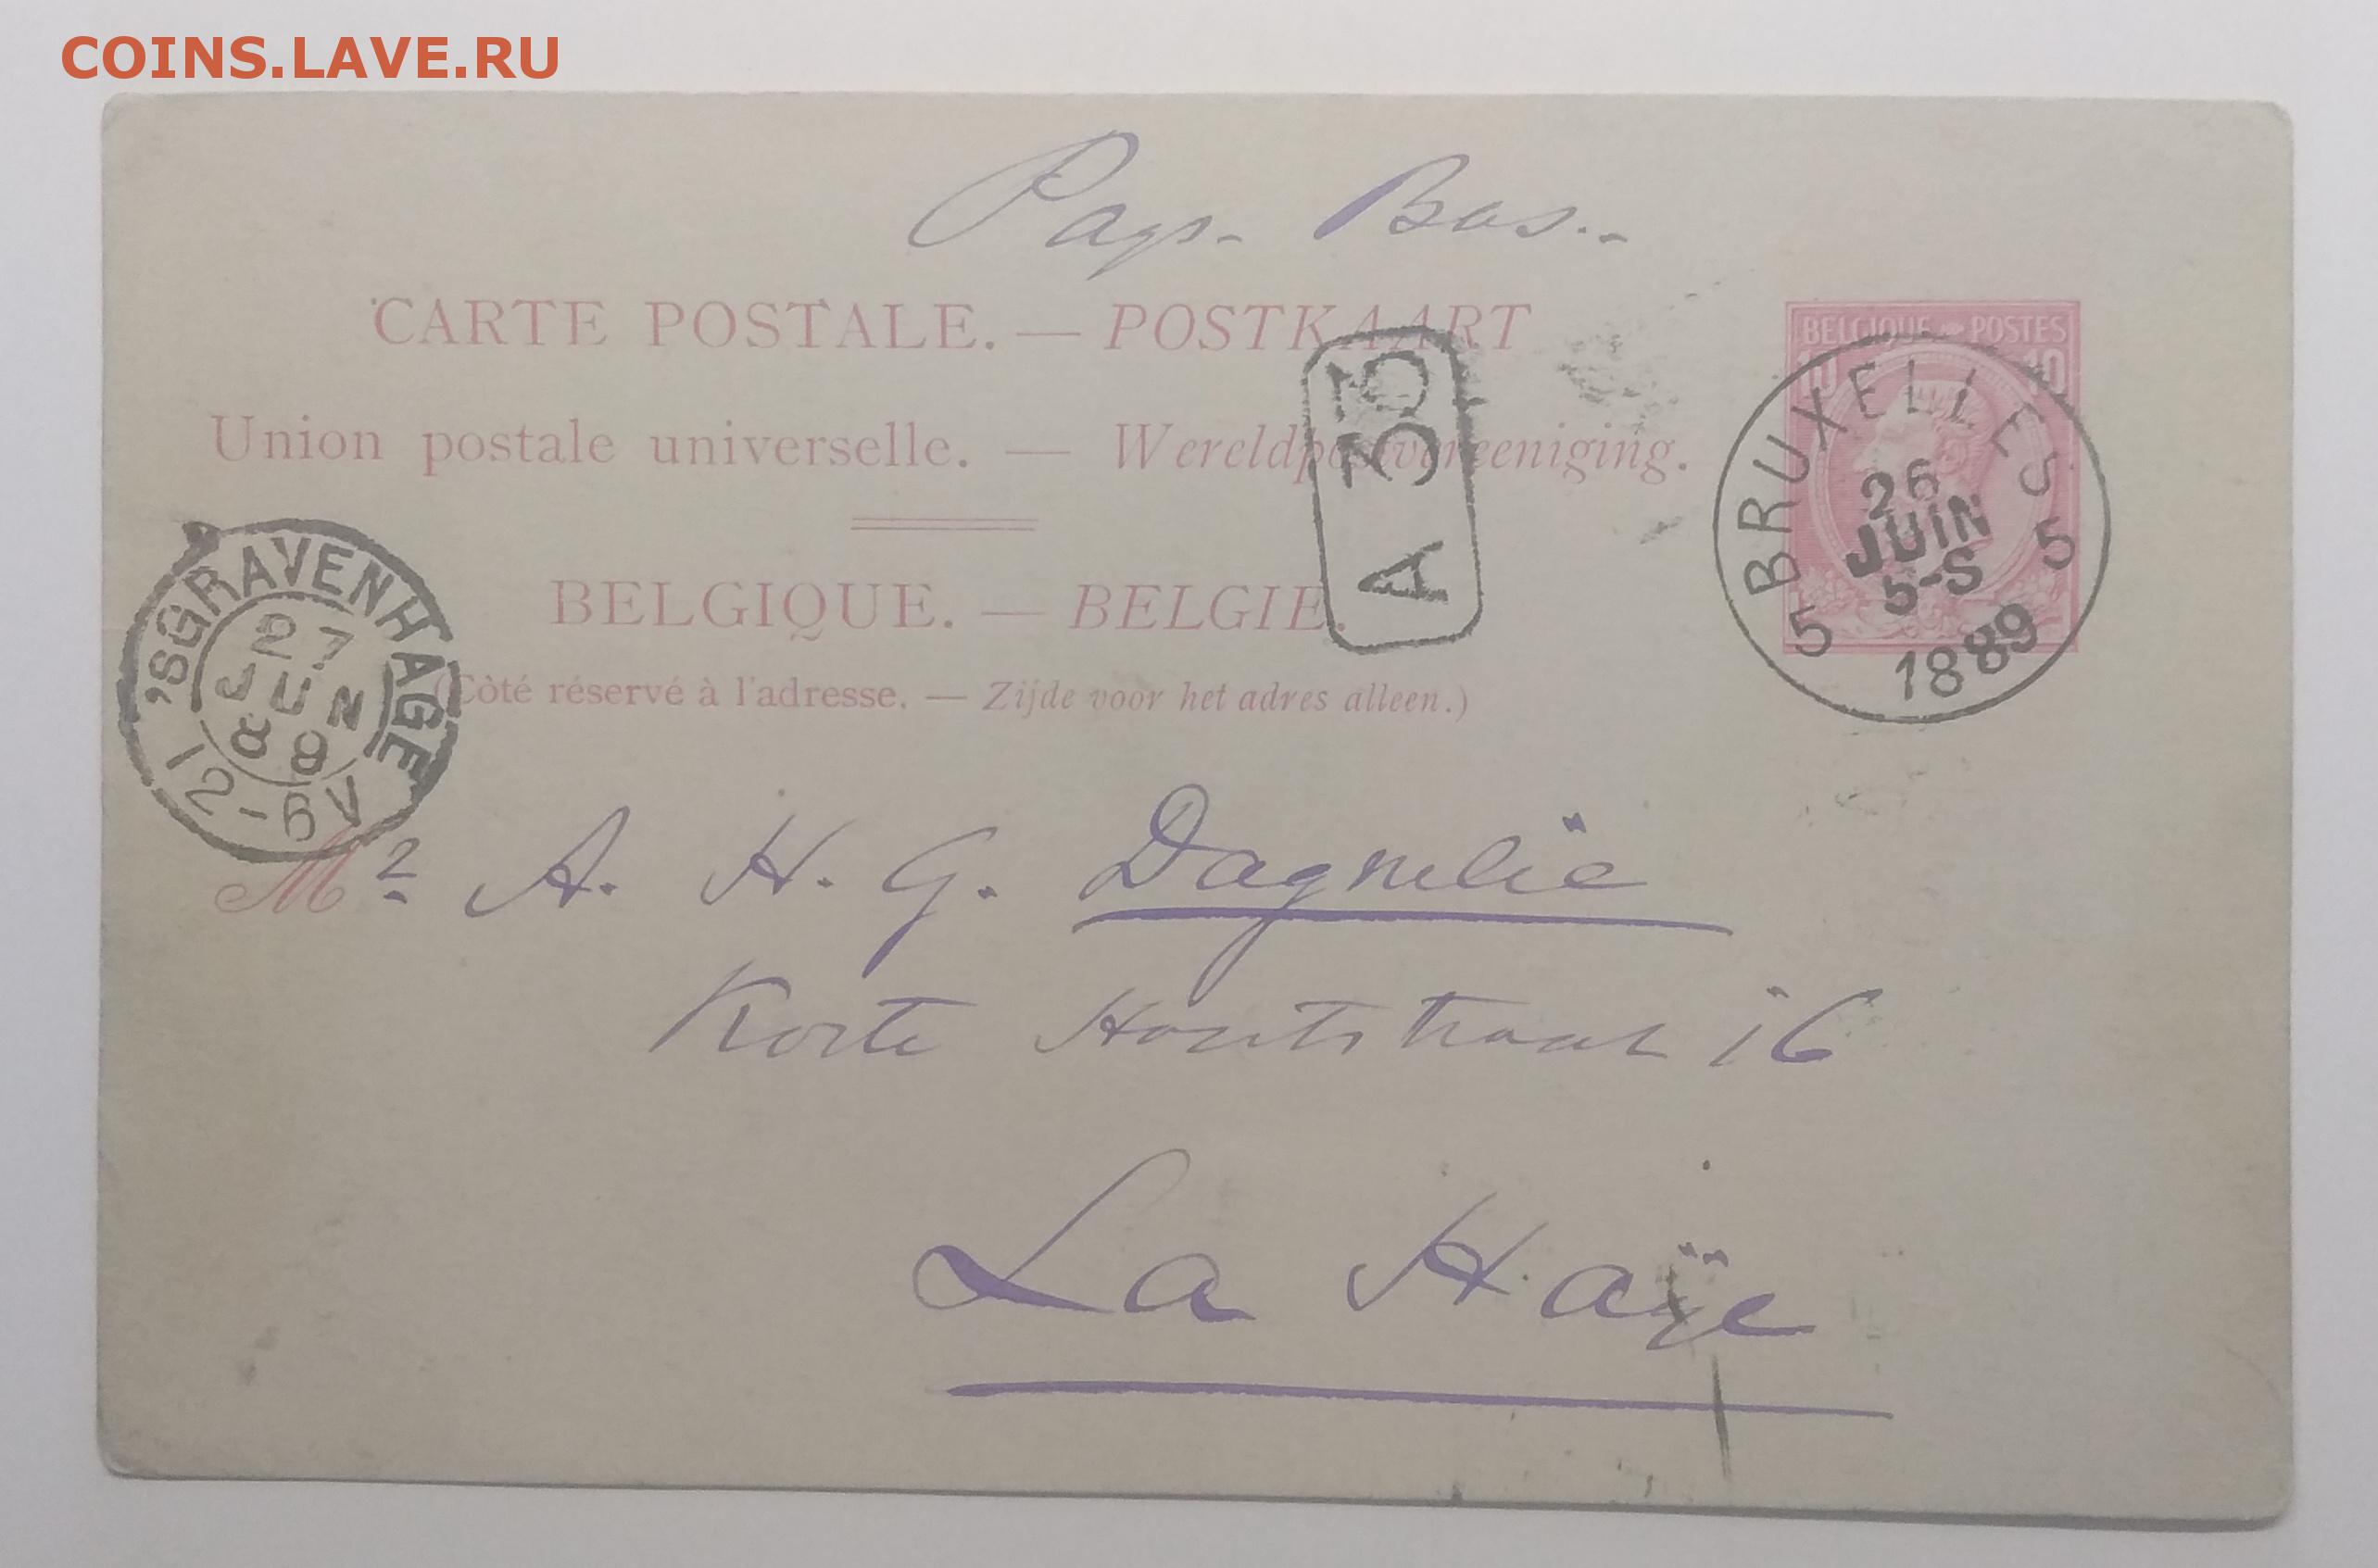 COINS.LAVE.RU
Pays-Bas.
CARTE POSTALE. — POSTKAART
BELGIQUE POSTES
10 10
Union postale universelle. — Wereldpostvereeniging.
A 33
BRUXELLES
26
JUIN
5-S
5 1889 5
'SGRAVENHAGE
27
JUN
89
12-6V
BELGIQUE. — BELGIE.
(Côté réservé à l'adresse. — Zijde voor het adres alleen.)
Mr A. H. G. Dagnelie
Korte Houtstraat 16
La Haÿe